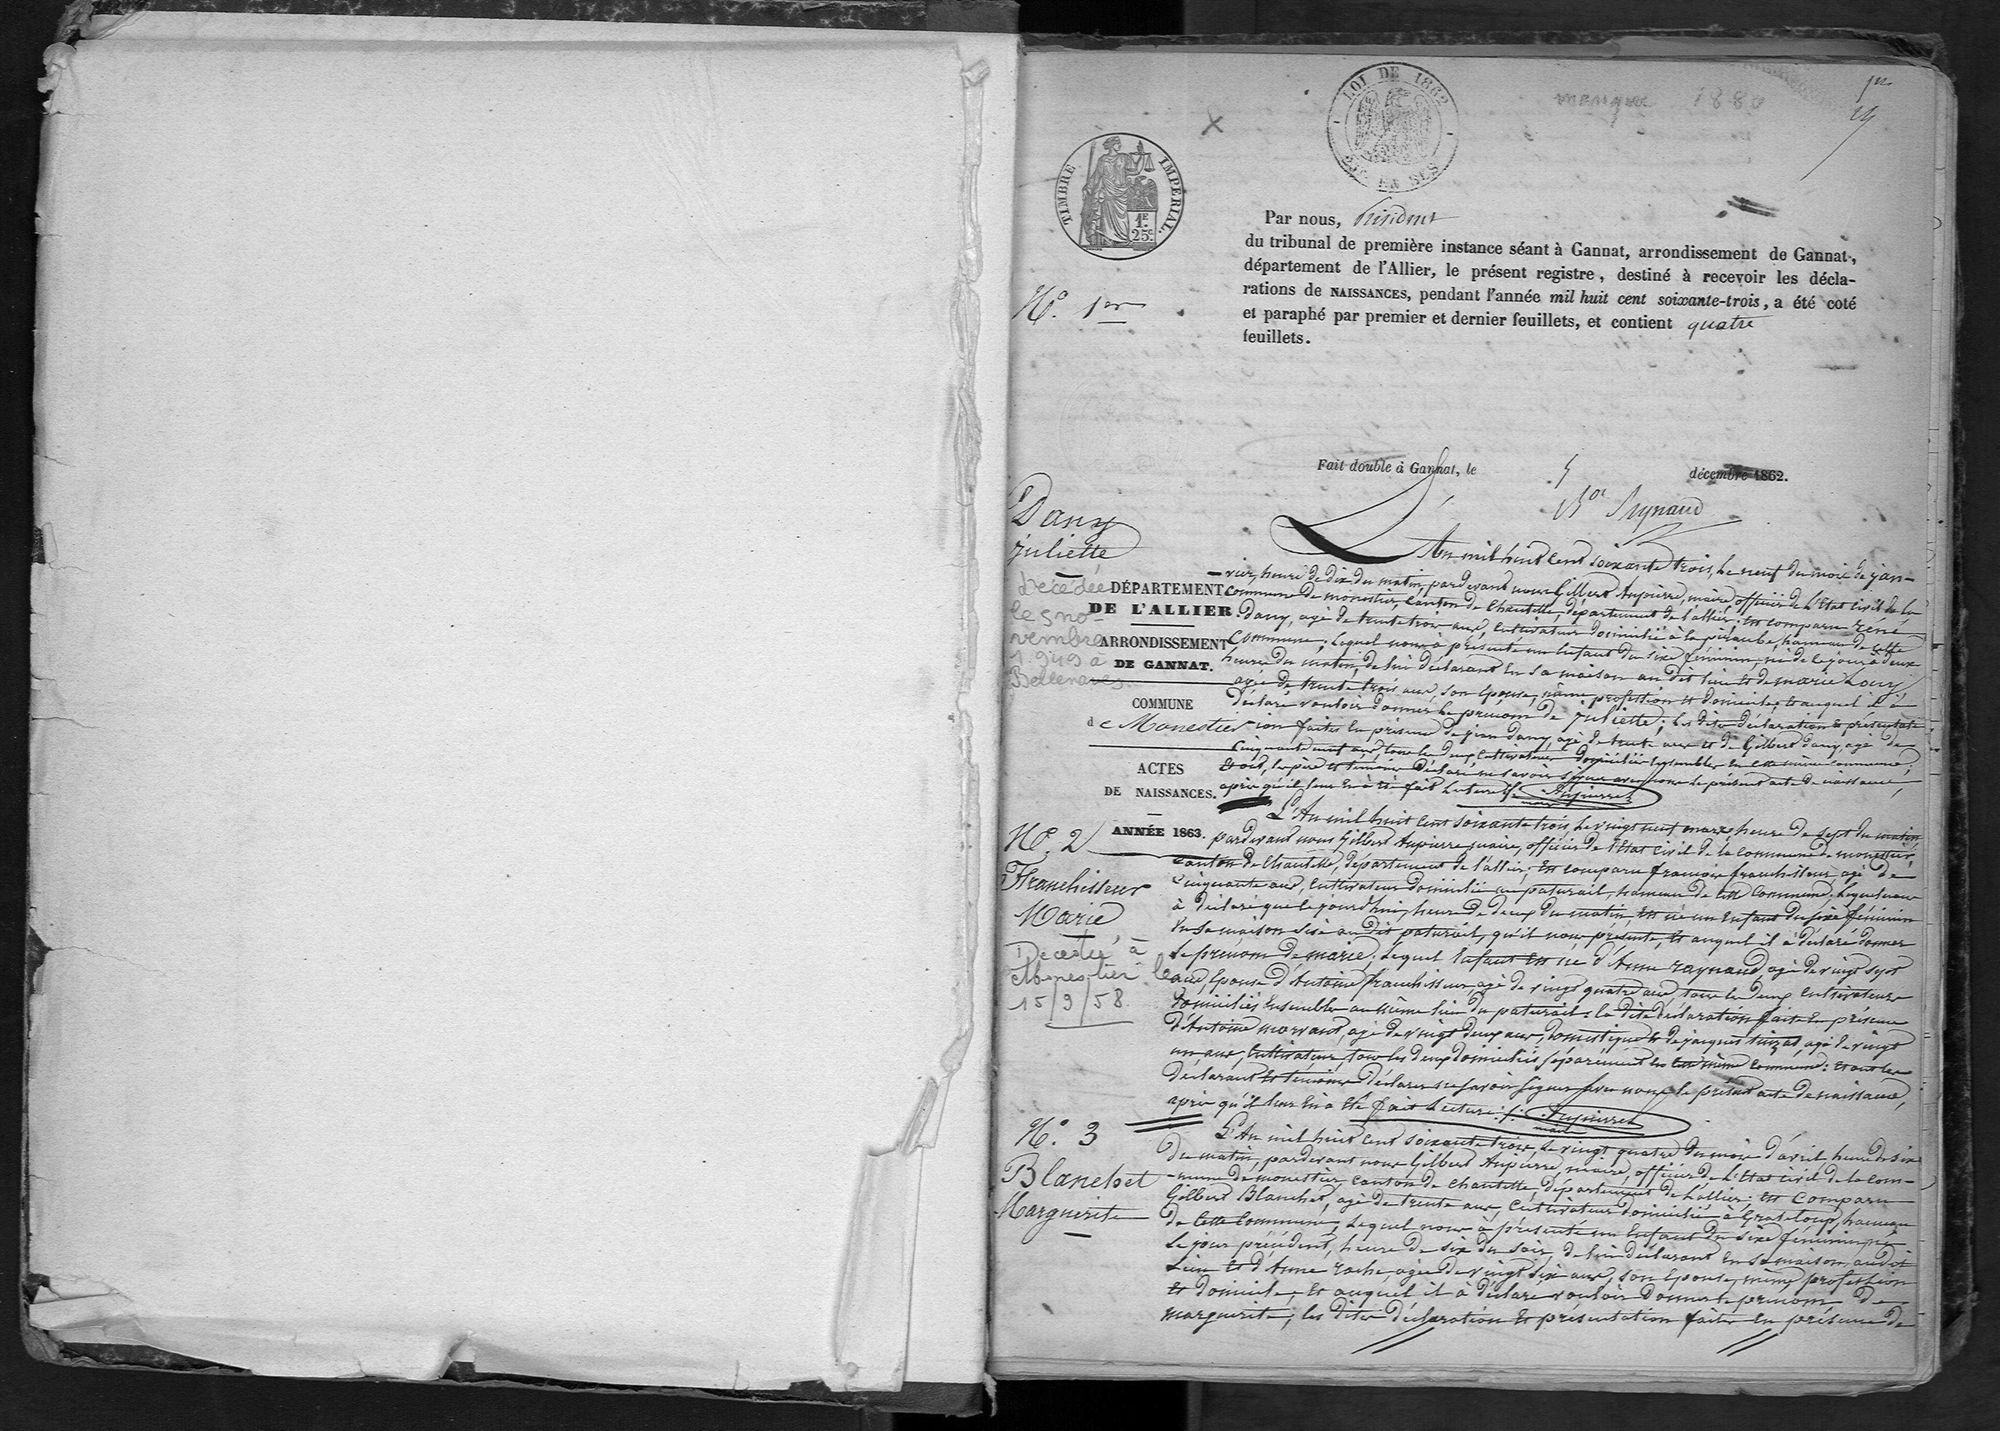 manque 1880
1er
LOI DE 1862
2/10 EN SUS
TIMBRE IMPERIAL
1F. 25c.
Par nous, Président
du tribunal de première instance séant à Gannat, arrondissement de Gannat,
département de l'Allier, le présent registre, destiné à recevoir les décla-
rations de NAISSANCES, pendant l'année mil huit cent soixante-trois, a été coté
et paraphé par premier et dernier feuillets, et contient quatre
feuillets.
N°. 1er
Fait double à Gannat, le 5 décembre 1862.
Reynaud
Dany
Juliette
Décédée
le 5 no-
vembre
1949 à
Bellenaves
DÉPARTEMENT
DE L'ALLIER
ARRONDISSEMENT
DE GANNAT.
COMMUNE
de Monestier
ACTES
DE NAISSANCES.
ANNÉE 1863.
L'An mil huit cent soixante trois, le neuf du mois de jan-
vier, heure de dix du matin, pardevant nous Gilbert Aupierre, maire, officier de l'Etat civil de la
commune de monestier, canton de Chantelle, département de l'allier, est comparu réné
Dany, agé de trente trois ans, cultivateur domicilié à la péraube, hameau de cette
commune; lequel nous à présenté un enfant du sixe féminin, né de le jour à deux
heures du matin, de lui déclarant en sa maison au dit lieu et de marie Louy
agée de trente trois ans, son épouse, même profession et domicile, et auquel il à
déclaré vouloir donner le prénom de juliette; les dites déclaration et présentat-
ion faites en présence de jean dany, agé de trente ans et de Gilbert dany, agé de
cinquante neuf ans, tous les deux cultivateurs domiciliés ensembles en cette même commune,
et ont, les père et témoins déclaré ne savoir signer avec nous le présent acte de naissance,
après qu'il leur en à été fait lecture. Aupierre
maire
N°. 2
Franchisseur
Marie
Décédée à
Monestier le
15/3/58
L'An mil huit cent soixante trois, le vingt neuf mars, heure de sept du matin,
pardevant nous Gilbert Aupierre, maire, officier de l'Etat civil de la commune de monestier,
canton de Chantelle, département de l'allier; est comparu françois franchisseur, agé de
cinquante ans, cultivateur domicilié au paturail, hameau de cette commune, lequel nous
à déclaré que le jourd'hui, heure de deux du matin, est né un enfant du sixe féminin
en sa maison sise au dit paturail, qu'il nous présente, et auquel il à déclaré donner
le prénom de marie; lequel enfant est né d'Anne raynaud, agé de vingt sept
ans, épouse d'Antoine franchisseur, agé de vingt quatre ans, tous les deux cultivateurs
domiciliés ensembles au même lieu du paturail: la dite déclaration faite en présence
d'Antoine morvant, agé de vingt deux ans, domestique et de jacques turzat, agé de vingt
un ans, cultivateur, tous les deux domiciliés séparément en cette même commune: et ont les
déclarant et témoins déclaré ne savoir signer avec nous le présent acte de naissance,
après qu'il leur en à été fait lecture. Aupierre
maire
N°. 3
Blanchet
Marguerite
L'An mil huit cent soixante trois, le vingt quatre du mois d'avril, heure de six
du matin, pardevant nous Gilbert Aupierre, maire, officier de l'Etat civil de la com-
mune de monestier, canton de chantelle, département de l'allier; est comparu
Gilbert Blanchet, agé de trente ans, cultivateur domicilié à Grateloup, hameau
de cette commune, lequel nous à présenté un enfant du sixe féminin, né
le jour précédent, heure de six du soir, de lui déclarant en sa maison, au dit
lieu et d'Anne roche, agée de vingt six ans, son épouse, même profession
et domicile, et auquel il à déclaré vouloir donner le prénom de
marguerite; les dites déclaration et présentation faites en présence de